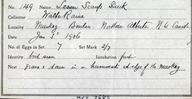 No. 149 Name Lesser Scaup Duck
Collector Walter Raine
Locality Muskeg Border Northern Alberta N.W. Canada
Date June 2nd 1906
No. of Eggs in Set 7 Set Mark 2/7
Identity bird seen Incubation fresh
Nest Grass & down in a hummock at edge of the Muskeg